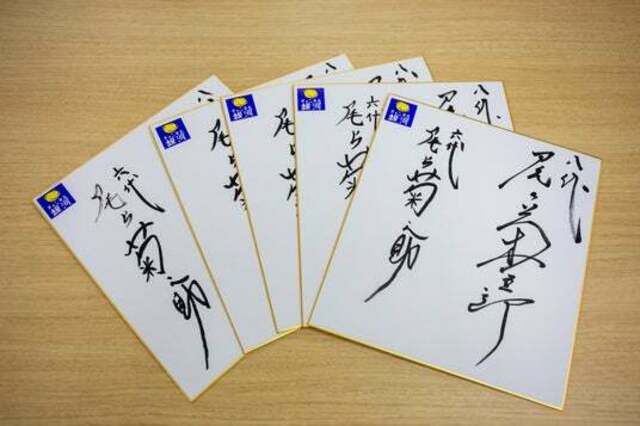 八代
尾上菊五郎
六代
尾上菊之助
八代
尾
六代
尾上菊
八代
尾上菊
尾上菊
六代
尾上菊之助